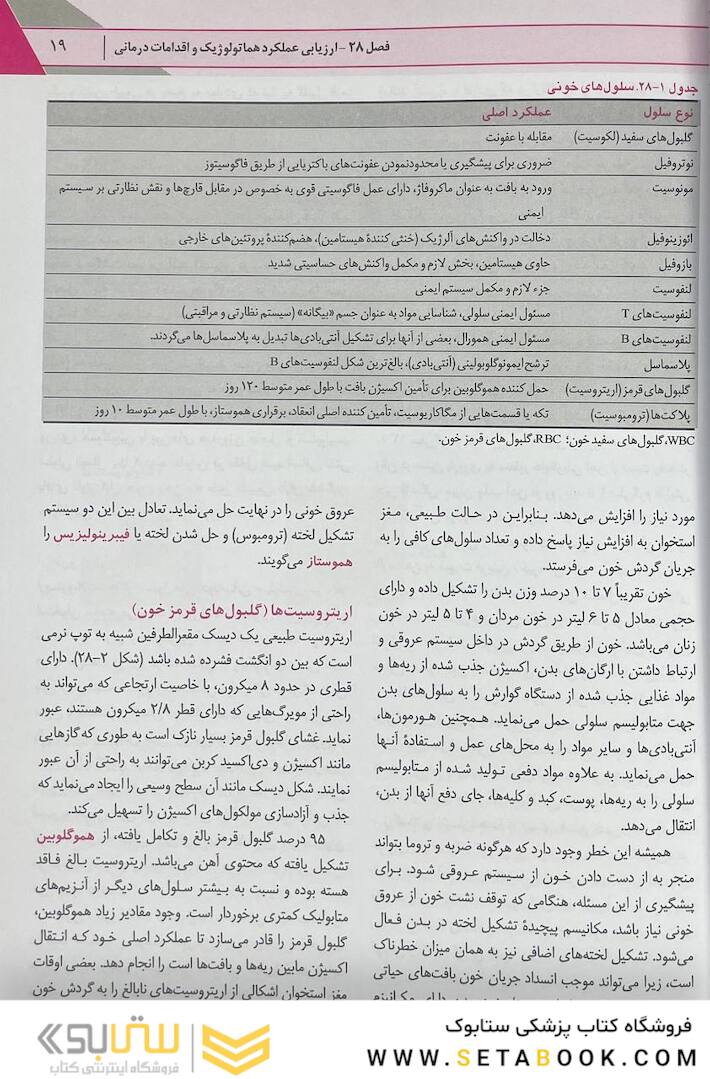 فصل ۲۸ - ارزیابی عملکرد هماتولوژیک و اقدامات درمانی ۱۹
جدول ۱-۲۸. سلول‌های خونی
نوع سلول عملکرد اصلی
گلبول‌های سفید (لکوسیت) مقابله با عفونت
نوتروفیل ضروری برای پیشگیری یا محدودنمودن عفونت‌های باکتریایی از طریق فاگوسیتوز
مونوسیت ورود به بافت به عنوان ماکروفاژ، دارای عمل فاگوسیتی قوی به خصوص در مقابل قارچ‌ها و نقش نظارتی بر سیستم
ایمنی
ائوزینوفیل دخالت در واکنش‌های آلرژیک (خنثی کنندهٔ هیستامین)، هضم‌کنندهٔ پروتئین‌های خارجی
بازوفیل حاوی هیستامین، بخش لازم و مکمل واکنش‌های حساسیتی شدید
لنفوسیت جزء لازم و مکمل سیستم ایمنی
لنفوسیت‌های T مسئول ایمنی سلولی، شناسایی مواد به عنوان جسم «بیگانه» (سیستم نظارتی و مراقبتی)
لنفوسیت‌های B مسئول ایمنی همورال، بعضی از آنها برای تشکیل آنتی‌بادی‌ها تبدیل به پلاسماسل‌ها می‌گردند.
پلاسماسل ترشح ایمونوگلوبولینی (آنتی‌بادی)، بالغ‌ترین شکل لنفوسیت‌های B
گلبول‌های قرمز (اریتروسیت) حمل کننده هموگلوبین برای تأمین اکسیژن بافت با طول عمر متوسط ۱۲۰ روز
پلاکت‌ها (ترومبوسیت) تکه یا قسمت‌هایی از مگاکاریوسیت، تأمین کننده اصلی انعقاد، برقراری هموستاز، با طول عمر متوسط ۱۰ روز
WBC، گلبول‌های سفید خون؛ RBC، گلبول‌های قرمز خون.
مورد نیاز را افزایش می‌دهد. بنابراین در حالت طبیعی، مغز
استخوان به افزایش نیاز پاسخ داده و تعداد سلول‌های کافی را به
جریان گردش خون می‌فرستد.
خون تقریباً ۷ تا ۱۰ درصد وزن بدن را تشکیل داده و دارای
حجمی معادل ۵ تا ۶ لیتر در خون مردان و ۴ تا ۵ لیتر در خون
زنان می‌باشد. خون از طریق گردش در داخل سیستم عروقی و
ارتباط داشتن با ارگان‌های بدن، اکسیژن جذب شده از ریه‌ها و
مواد غذایی جذب شده از دستگاه گوارش را به سلول‌های بدن
جهت متابولیسم سلولی حمل می‌نماید. همچنین هورمون‌ها،
آنتی‌بادی‌ها و سایر مواد را به محل‌های عمل و استفادهٔ آنها
حمل می‌نماید. به علاوه مواد دفعی تولید شده از متابولیسم
سلولی را به ریه‌ها، پوست، کبد و کلیه‌ها، جای دفع آنها از بدن،
انتقال می‌دهد.
همیشه این خطر وجود دارد که هرگونه ضربه و تروما بتواند
منجر به از دست دادن خون از سیستم عروقی شود. برای
پیشگیری از این مسئله، هنگامی که توقف نشت خون از عروق
خونی نیاز باشد، مکانیسم پیچیدهٔ تشکیل لخته در بدن فعال
می‌شود. تشکیل لخته‌های اضافی نیز به همان میزان خطرناک
است، زیرا می‌تواند موجب انسداد جریان خون بافت‌های حیاتی
عروق خونی را در نهایت حل می‌نماید. تعادل بین این دو سیستم
تشکیل لخته (ترومبوس) و حل شدن لخته یا فیبرینولیزیس را
هموستاز می‌گویند.
اریتروسیت‌ها (گلبول‌های قرمز خون)
اریتروسیت طبیعی یک دیسک مقعرالطرفین شبیه به توپ نرمی
است که بین دو انگشت فشرده شده باشد (شکل ۲-۲۸). دارای
قطری در حدود ۸ میکرون، با خاصیت ارتجاعی که می‌تواند به
راحتی از مویرگ‌هایی که دارای قطر ۲/۸ میکرون هستند، عبور
نماید. غشای گلبول قرمز بسیار نازک است به طوری که گازهایی
مانند اکسیژن و دی‌اکسید کربن می‌توانند به راحتی از آن عبور
نمایند. شکل دیسک مانند آن سطح وسیعی را ایجاد می‌نماید که
جذب و آزادسازی مولکول‌های اکسیژن را تسهیل می‌کند.
۹۵ درصد گلبول قرمز بالغ و تکامل یافته، از هموگلوبین
تشکیل یافته که محتوی آهن می‌باشد. اریتروسیت بالغ فاقد
هسته بوده و نسبت به بیشتر سلول‌های دیگر از آنزیم‌های
متابولیک کمتری برخوردار است. وجود مقادیر زیاد هموگلوبین،
گلبول قرمز را قادر می‌سازد تا عملکرد اصلی خود که انتقال
اکسیژن مابین ریه‌ها و بافت‌ها است را انجام دهد. بعضی اوقات
مغز استخوان اشکالی از اریتروسیت‌های نابالغ را به گردش خون
فروشگاه کتاب پزشکی ستابوک
WWW.SETABOOK.COM
ستابوک
فروشگاه اینترنتی کتاب